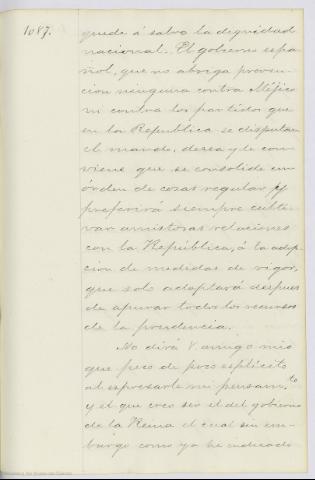 1087.
quede á salvo la dignidad
nacional. El gobierno espa-
ñol, que no abriga preven-
cion ninguna contra Méjico
ni contra los partidos que
en la República se disputan
el mando, desea y le con-
viene que se consolide un
órden de cosas regular y
preferirá siempre culti-
var amistosas relaciones
con la República, á la adop-
cion de medidas de rigor,
que solo adoptará despues
de apurar todos los recursos
de la prudencia.
No dirá V. amigo mio
que peco de poco esplícito
al espresarle mi pensam.to
y el que creo ser el del gobierno
de la Reina el cual sin em-
bargo como ya he indicado